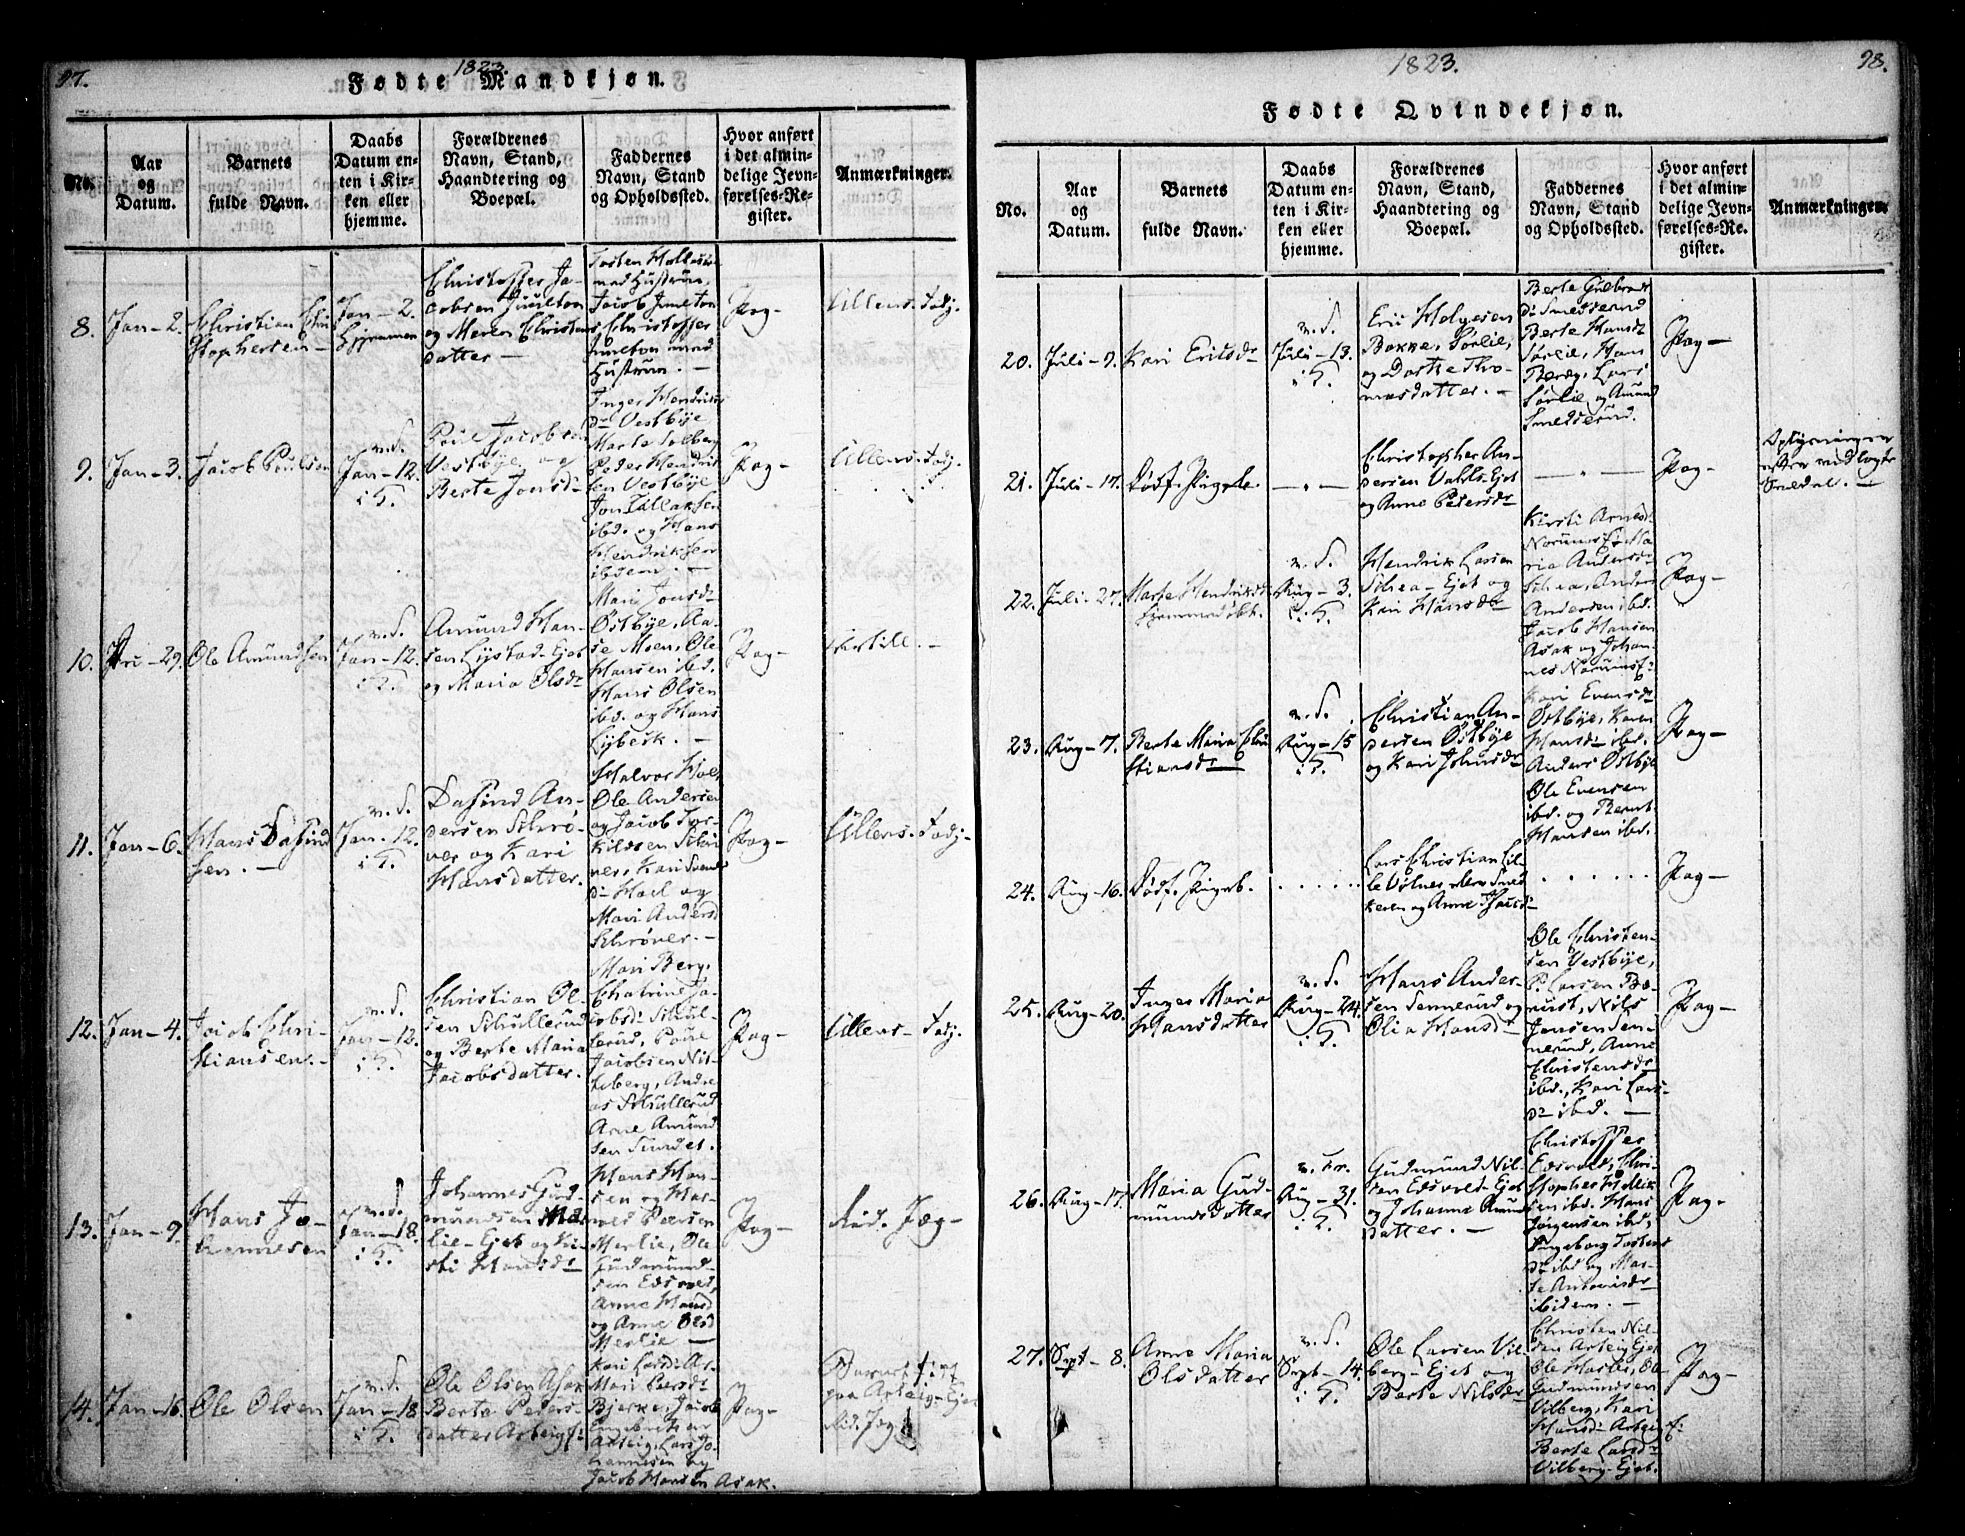 97.
1823.
Fødte Mandkjøn.
No.
Aar
og
Datum.
Barnets
fulde Navn.
Daabs
Datum en-
ten i Kir-
ken eller
hjemme.
Forældrenes
Navn, Stand,
Haandtering og
Boepæl.
Faddernes
Navn, Stand
og Opholdssted.
Hvor anført
i det almin-
delige Jevn-
førelses-Re-
gister.
Anmærkninger.
8.
Jan - 2.
Christian Chri
stophersen -
Jan - 2.
Hjemmen
Christoffer Ja-
cobsen Juulton
og Maren Christens
datter -
med Hustrue,
Jacob
Christoffer
med
Hustrue. -
Pag -
Ullens. Tadj.
9.
Jan - 3.
Jacob Poulsen
v. d.
Jan - 12.
i T.
Poul Jacobsen
Vestbye og
Berte Jonsdr
Inger Hendriks
dr Vestbye
Marte Solberg
Peder Hendrik
sen Vestbye
Jon Tollaksen
ibd. og Hans
Hendriksen
ibdem. -
Pag -
Ullens. Tadj.
10.
- 29.
Ole Amundsen
v. d.
Jan - 12.
i T.
Amund Han-
sen Lystad-Ejet
og Maria Olsdr
Mari Jonsdr
Østbye,
Moen, Ole
Hansen ibd.
Hans Olsen
ibd. og Hans
Lybeck. -
Pag -
11.
Jan - 6.
Hans Dafind
sen. -
v. d.
Jan - 12.
i T.
Dafind An-
dersen Schrø-
ver og Kari
Hansdatter.
Halvor
Ole Andersen
og Jacob Tor-
kildsen
Kari
dr Hoel og
Mari Andersd
Schrøver. -
Pag -
Ullens. Tadj.
12.
Jan - 4.
Jacob Chri-
stiansen. -
v. d.
Jan - 12.
i T.
Christian Ol-
sen Schullerud
og Berte Maria
Jacobsdatter.
Mari Berg,
Chatrine Ja-
cobsdr Schul-
lerud, Poul
Jacobsen Nit-
teberg, Andre
as Schullerud
Arne Amund
sen Sundet.
Pag -
Ullens. Tadj.
13.
Jan - 9.
Hans Jo-
hannesen
v. d.
Jan - 18.
i T.
Johannes Gud-
mundsen Mær-
lie-Ejet og Kir-
sti Hansdr
Hans Han-
sen og
Peersen
Merlie, Ole
Gudmund-
sen Edsvold,
Anne Hansd
og Anne Olsd
Merlie -
Pag -
Rød. Jæg -
14.
Jan - 16.
Ole Olsen
v. d.
Jan - 18
i T.
Ole Olsen Asak
Berte Peders-
datter Arteig
Kari Larsdr
Mari Peersdr
Bjerke, Jacob
Engebretsen
Arteig, Lars Jo-
hannesen og
Jacob Hansen Asak.
Pag -
Barnet
paa Arteig-Ejet
Rød. Jæg
98.
1823.
Fødte Qvindekjøn.
No.
Aar
og
Datum.
Barnets
fulde Navn.
Daabs
Datum en-
ten i Kir-
ken eller
hjemme.
Forældrenes
Navn, Stand,
Haandtering og
Boepæl.
Faddernes
Navn, Stand
og Opholdssted.
Hvor anført
i det almin-
delige Jevn-
førelses-Re-
gister.
Anmærkninger.
20.
Juli - 9.
Kari Ericsdr
v. d.
Juli - 13.
i T.
Eric Holgersen
Bakke, Sørlie,
og Dorthe Tho-
masdatter. -
Berte Gulbrands
dr Smedserud
Berte Hansdr
Sørlie, Hans
Berg, Lars
Sørlie og Amund
Smedserud.
Pag -
21.
Juli - 17.
Dødf. Pigeb.
- " -
Christopher An-
dersen Vahls-Ejet
og Anne Pedersdr
- " -
Pag -
Oplysningen
22.
Juli - 27.
Marte Hendriksdr
hjemmedøbt.
v. d.
Aug - 3.
i T.
Hendrik Larsen
Ejet og
Kari Hansdr
Kirsti Arnesdr
Maria
Andersdr
Anders
Andersen ibd.
Jacob Hansen
Asak og Johan-
nes
Pag -
23.
Aug - 7.
Berte Maria Chri
stiansdr
v. d.
Aug - 15.
i T.
Christian An-
dersen Østbye
og Kari Johnsdr
Kari Evensdr
Østbye, Karen
Hansdr ibd.
Anders Østbye
Ole Evensen
ibd. og Bernt
Hansen ibd.
Pag -
24.
Aug - 16.
Dødf. Pigeb.
. . . . . .
Lars Christian Lil-
le Vølner
og Anne
. . . . . .
Pag -
25.
Aug - 20.
Inger Maria
Hansdatter
v. d.
Aug - 24.
i T.
Hans Ander-
sen Sennerud og
Olia Hansdr
Ole Christen-
sen Vestbye,
P Larsen
Nils
Jensen Sen-
nerud, Anne
Christensdr
ibd., Kari Lars
dr ibd. -
Pag -
26.
Aug - 17.
Maria Gud-
mundsdatter
v. Fr.
Aug - 31.
i T.
Gudmund Nil-
sen Edsvold-Ejet
og Johanne Amund
datter. -
Christoffer
Edsvold, Chri-
stopher Hendrik
sen ibd. Hans
Jørgensen ibd,
Ingeborg Tostens
dr ibd og Mar-
te Antonisdr
ibidem. -
Pag -
27.
Sept - 8.
Anne Maria
Olsdatter
v. d.
Sept - 14.
i T.
Ole Larsen Vil-
berg-Ejet og
Berte Nilsdr
Christen Nil-
sen Arteig Ejet
Ole
Gudmundsen
Vilberg, Kari
Hansdr Arteig
Berte Larsdr
Vilberg-Ejet.
Pag -